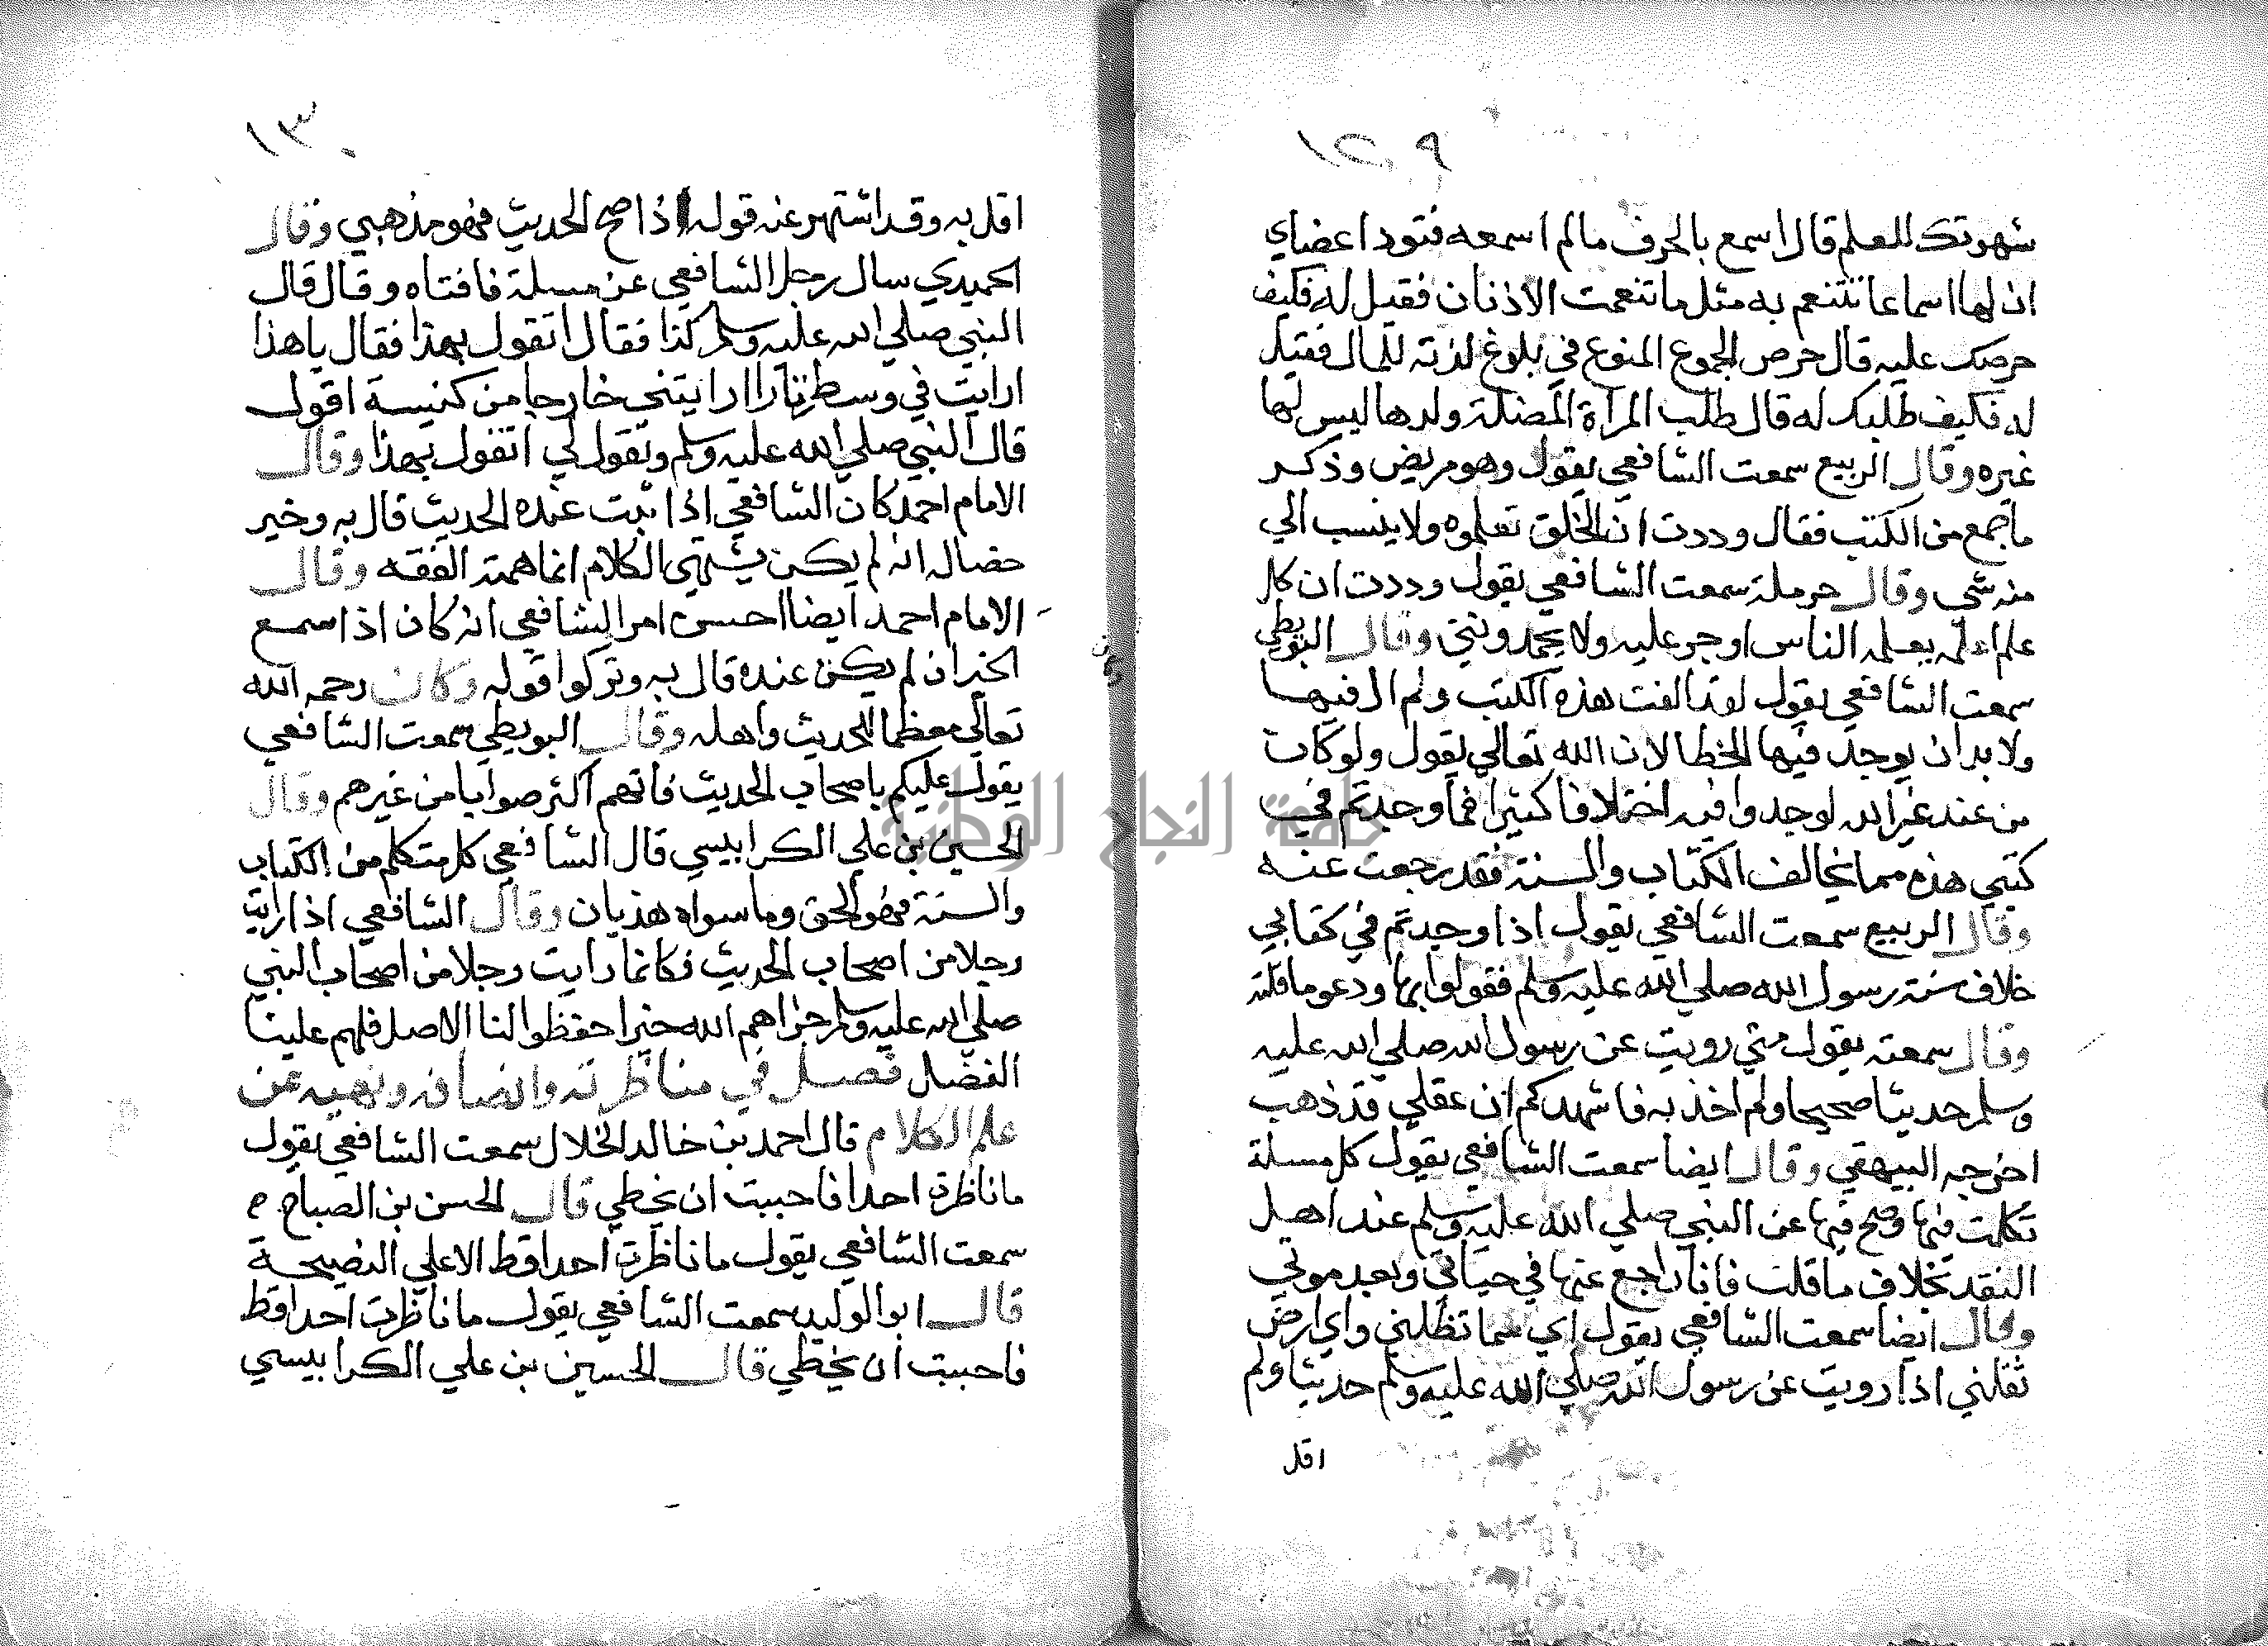 شهوتك للعلم قال اسمع بالحرف مالم اسمعه فتود اعضاي
ان لها اسماعا تتنعم به مثل ما تنعمت الاذنان فقيل له فكيف
حرصك عليه قال حرص الجموع المنوع في بلوغ لذته للمال فقيل
له فكيف طلبك له قال طلب المرأة المضلة ولدها ليس لها
غيره وقال الربيع سمعت الشافعي يقول وهو مريض وذكر
ما جمع من الكتب فقال وددت ان الخلق تعلموه ولا ينسب الي
منه شي وقال حرملة سمعت الشافعي يقول وددت ان كل
علم اعلمه يعلمه الناس اوجر عليه ولا يحمدونني وقال البويطي
سمعت الشافعي يقول لقد الفت هذه الكتب ولم ال فيها
ولا بد ان يوجد فيها الخطا لان الله تعالي يقول ولو كان
من عند غير الله لوجدوا فيه اختلافا كثيرا فما وجدتم في
كتبي هذه مما يخالف الكتاب والسنة فقد رجعت عنه
وقال الربيع سمعت الشافعي يقول اذا وجدتم في كتابي
خلاف سنة رسول الله صلي الله عليه وسلم فقولوا بها ودعوا ما قلته
وقال سمعته يقول متي رويت عن رسول الله صلي الله عليه
وسلم حديثا صحيحا ولم اخذ به فاشهدكم ان عقلي قد ذهب
اخرجه البيهقي وقال ايضا سمعت الشافعي يقول كل مسلة
تكلمت فيها وصح فيها عن النبي صلي الله عليه وسلم عند اهل
النقد بخلاف ما قلت فانا راجع عنها في حياتي وبعد موتي
وقال ايضا سمعت الشافعي يقول اي سما تظلني واي ارض
تقلني اذا رويت عن رسول الله صلي الله عليه وسلم حديثا ولم
اقل
١٣
اقل به وقد اشتهر عنه قوله اذا صح الحديث فهو مذهبي وقال
الحميدي سال رجل الشافعي عن مسلة فافتاه وقال قال
النبي صلي الله عليه وسلم كذا فقال اتقول بهذا فقال يا هذا
ارايت في وسطي زنارا ارايتني خارجا من كنيسة اقول
قال النبي صلي الله عليه وسلم وتقول لي اتقول بهذا وقال
الامام احمد كان الشافعي اذا ثبت عنده الحديث قال به وخير
خصاله انه لم يكن يشتهي الكلام انما همته الفقه وقال
الامام احمد ايضا احسن امر الشافعي انه كان اذا سمع
الخبر ان لم يكن عنده قال به وتركوا قوله وكان رحمه الله
تعالي معظما للحديث واهله وقال البويطي سمعت الشافعي
يقول عليكم باصحاب الحديث فانهم اكثر صوابا من غيرهم وقال
الحسين بن علي الكرابيسي قال الشافعي كل متكلم من الكتاب
والسنة فهو الحق وما سواه هذيان وقال الشافعي اذا رايت
رجلا من اصحاب الحديث فكانما رايت رجلا من اصحاب النبي
صلي الله عليه وسلم جزاهم الله خيرا حفظوا لنا الاصل فلهم علينا
الفضل فصل في مناظرته وانصافه ونهيه عن
علم الكلام قال احمد بن خالد الخلال سمعت الشافعي يقول
ما ناظرت احدا فاحببت ان يخطي قال الحسن بن الصباح
سمعت الشافعي يقول ما ناظرت احدا قط الا علي النصيحة
قال ابو الوليد سمعت الشافعي يقول ما ناظرت احدا قط
فاحببت ان يخطي قال الحسين بن علي الكرابيسي
جامعة النجاح الوطنية